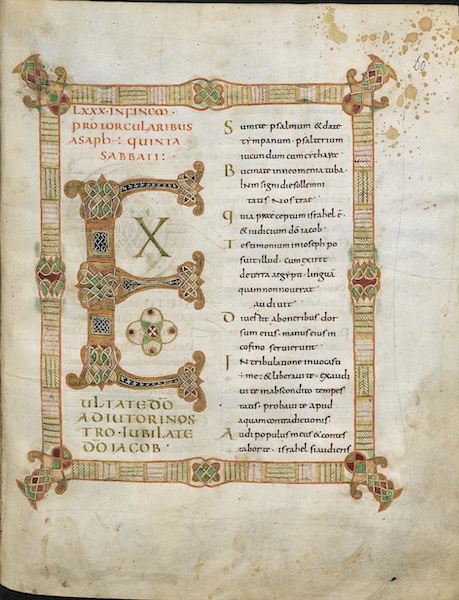 LXXX·IN FINEM·
PRO TORCULARIBUS
ASAPH·: QUINTA
SABBATI:
EX
ULTATE DŌ
ADIUTORI NOS
TRO·IUBILATE
DŌ IACOB·
Sumite psalmum & date
tympanum· psalterium
iucundum cum cythare
Bucinate in neomenia tuba·
In insigni die sollemni
tatis nostrae
quia preceptum israhel ē
& iudicium dō iacob·
Testimonium in ioseph po
suit illud· cum exir&
de terra aegypti· linguā
quam non noverat
audivit
Divertit ab oneribus dor
sum eius· manus eius in
cofino servierunt·
In tribulatione invocasti
me· & liberavi te· exaudi
vi te in abscondito tempes
tatis· probavi te apud
aquam contradictionis·
Audi populus meus & contes
tabor te· israhel si audieris
60